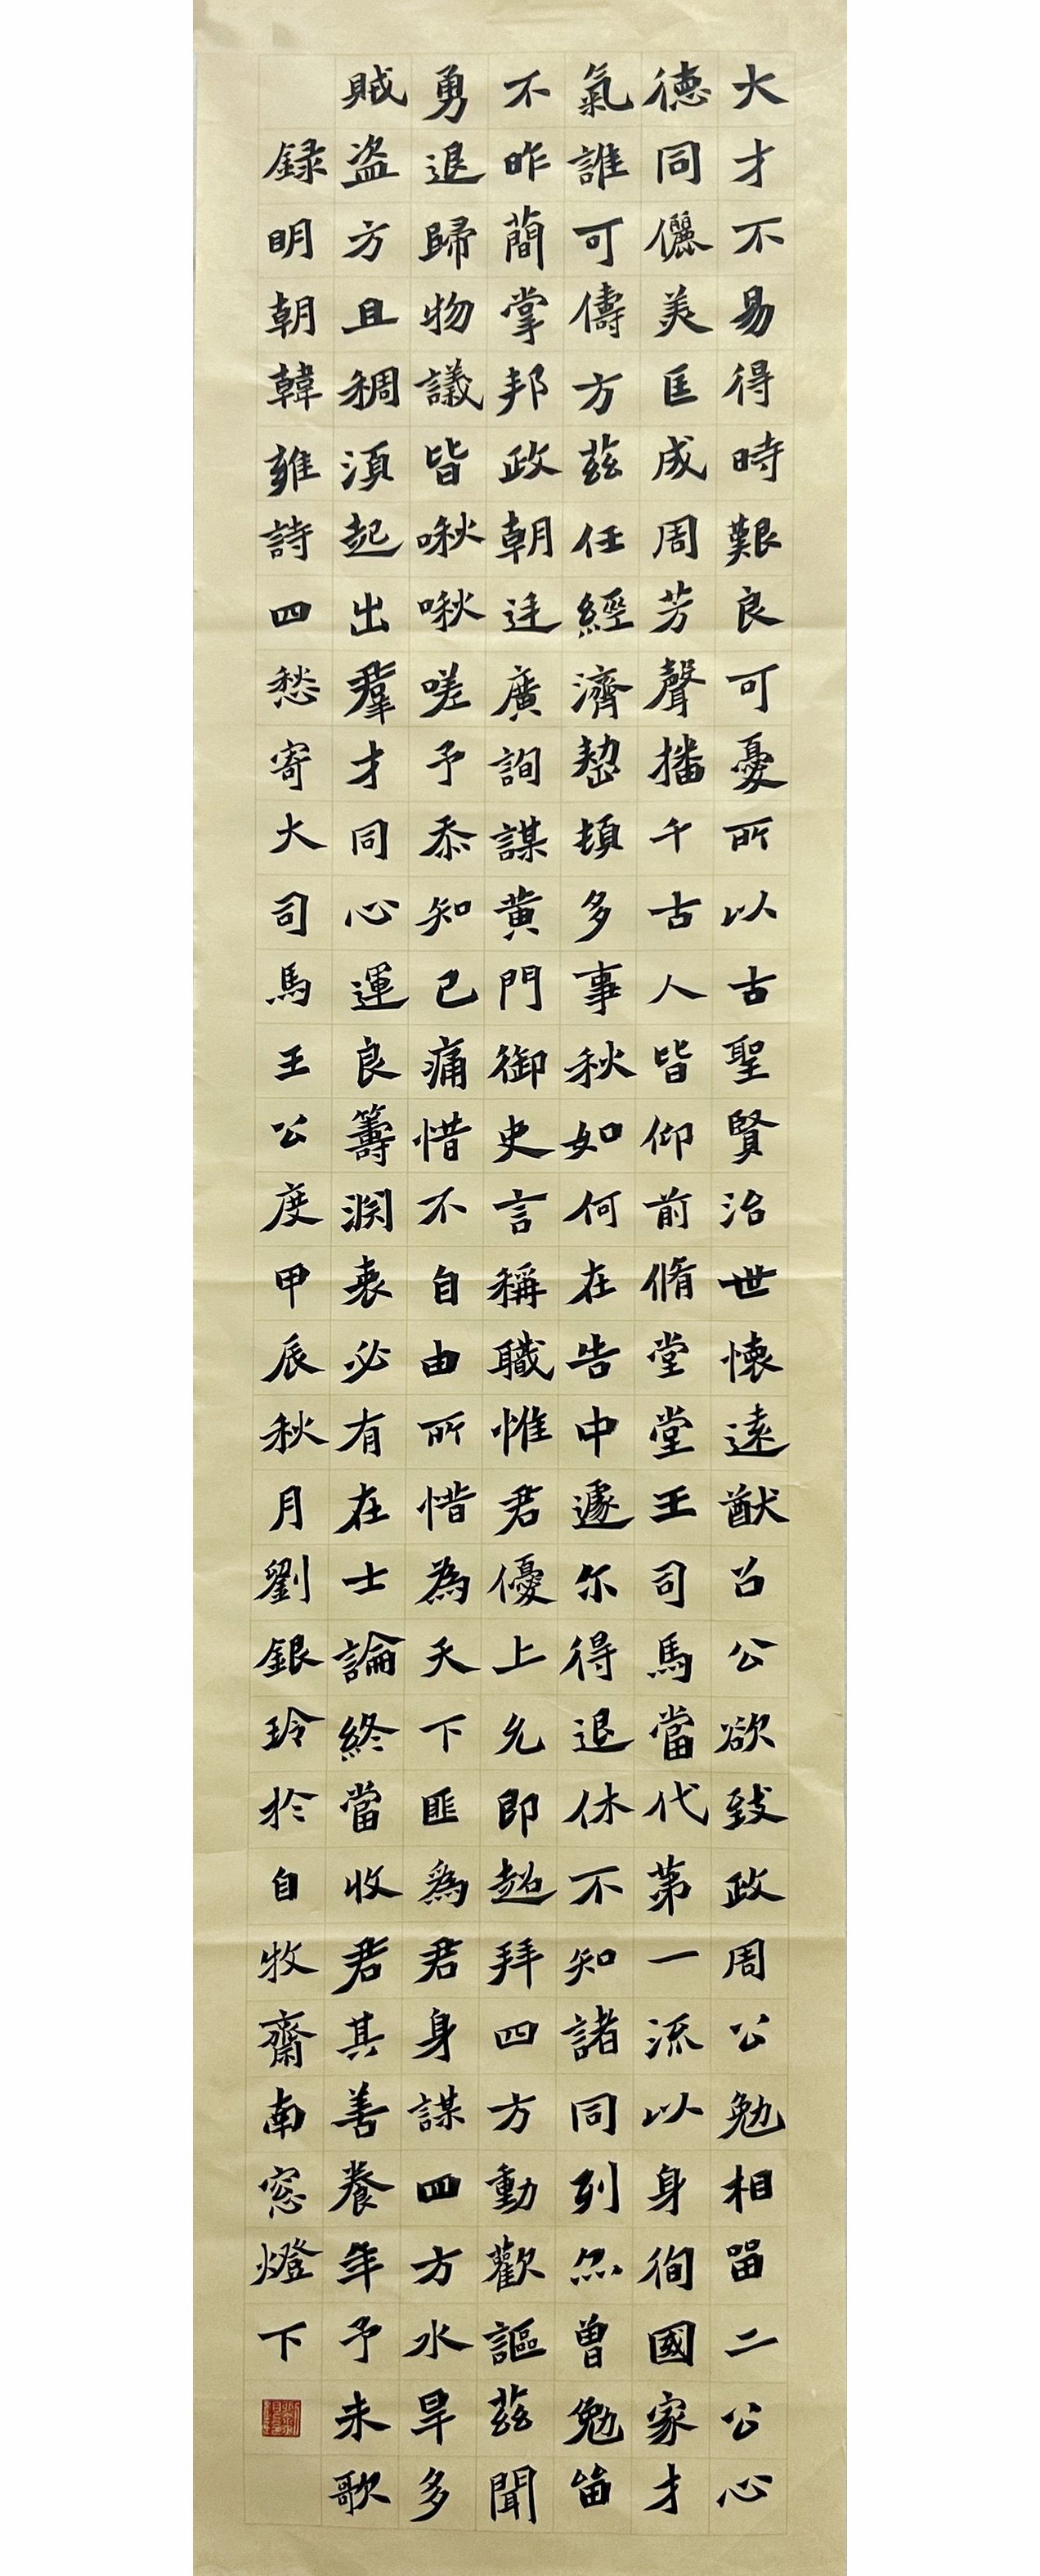 大才不易得時艱良可憂所以古聖賢治世懷遠猷召公欲致政周公勉相留二公心
德同儷美匡成周芳聲播千古人皆仰前脩堂堂王司馬當代第一流以身徇國家才
氣誰可儔方茲任經濟愸頓多事秋如何在告中遽尔得退休不知諸同列亦曾勉留
不昨蕳掌邦政朝廷廣詢謀黄門御史言稱職惟君優上允即超拜四方動歡謳茲聞
勇退歸物議皆啾啾嗟予忝知己痛惜不自由所惜為天下匪為君身謀四方水旱多
賊盗方且稠須起出羣才同心運良籌淵衷必有在士論終當收君其善養年予未歌
録明朝韓雍詩四愁寄大司馬王公度甲辰秋月劉銀玲於自牧齋南窓燈下